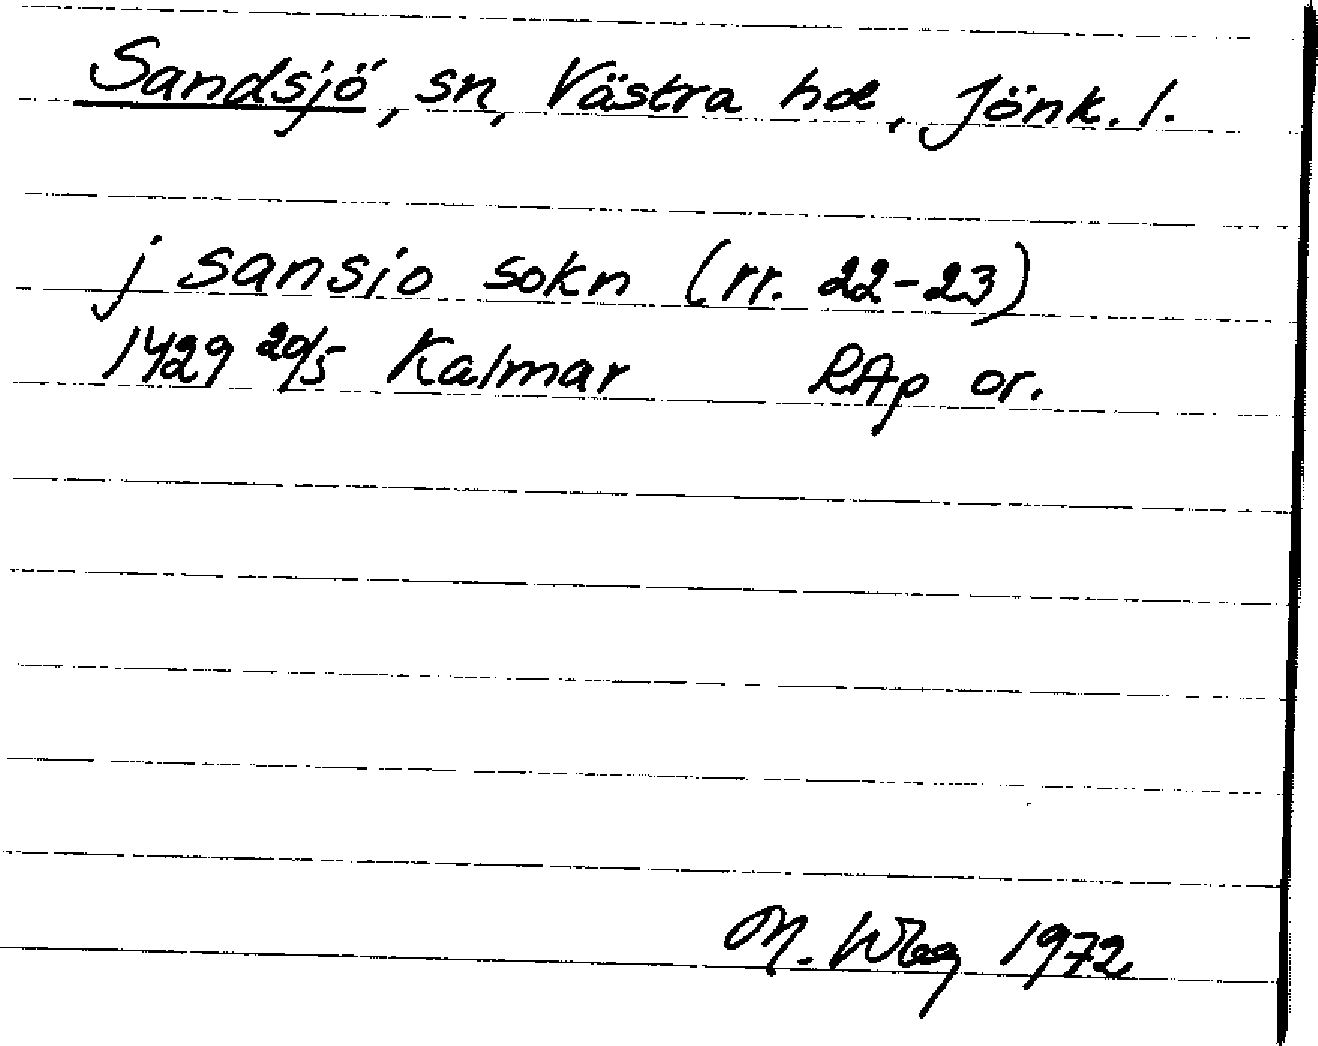 Sandsjö, sn, Västra hd, Jönk. l.
j sansio sokn (rr. 22-23)
1429 20/5 Kalmar RAp or.
M. Wbg 1972